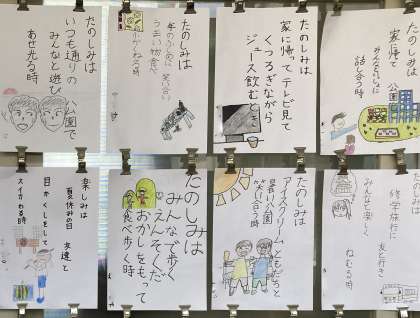 たのしみは
家に帰って
公園で
みんなといっしょに
話し合う時
たのしみは
家に帰ってテレビ見て
くつろぎながら
ジュース飲むとき
たのしみは
笑い合い
うまい物食べ
たのしみは
いつも通りの公園で
みんなと遊び
あせ光る時
たのしみは
修学旅行に
友と行き
みんなと楽しく
ねむる時
たのしみは
アイスクリームともだちと
暑い公園
笑い合う時
たのしみは
みんなで歩く
えんそくだ
おかしをもって
食べ歩く時
楽しみは
夏休みの日
友達と
目かくしをして
スイカわる時